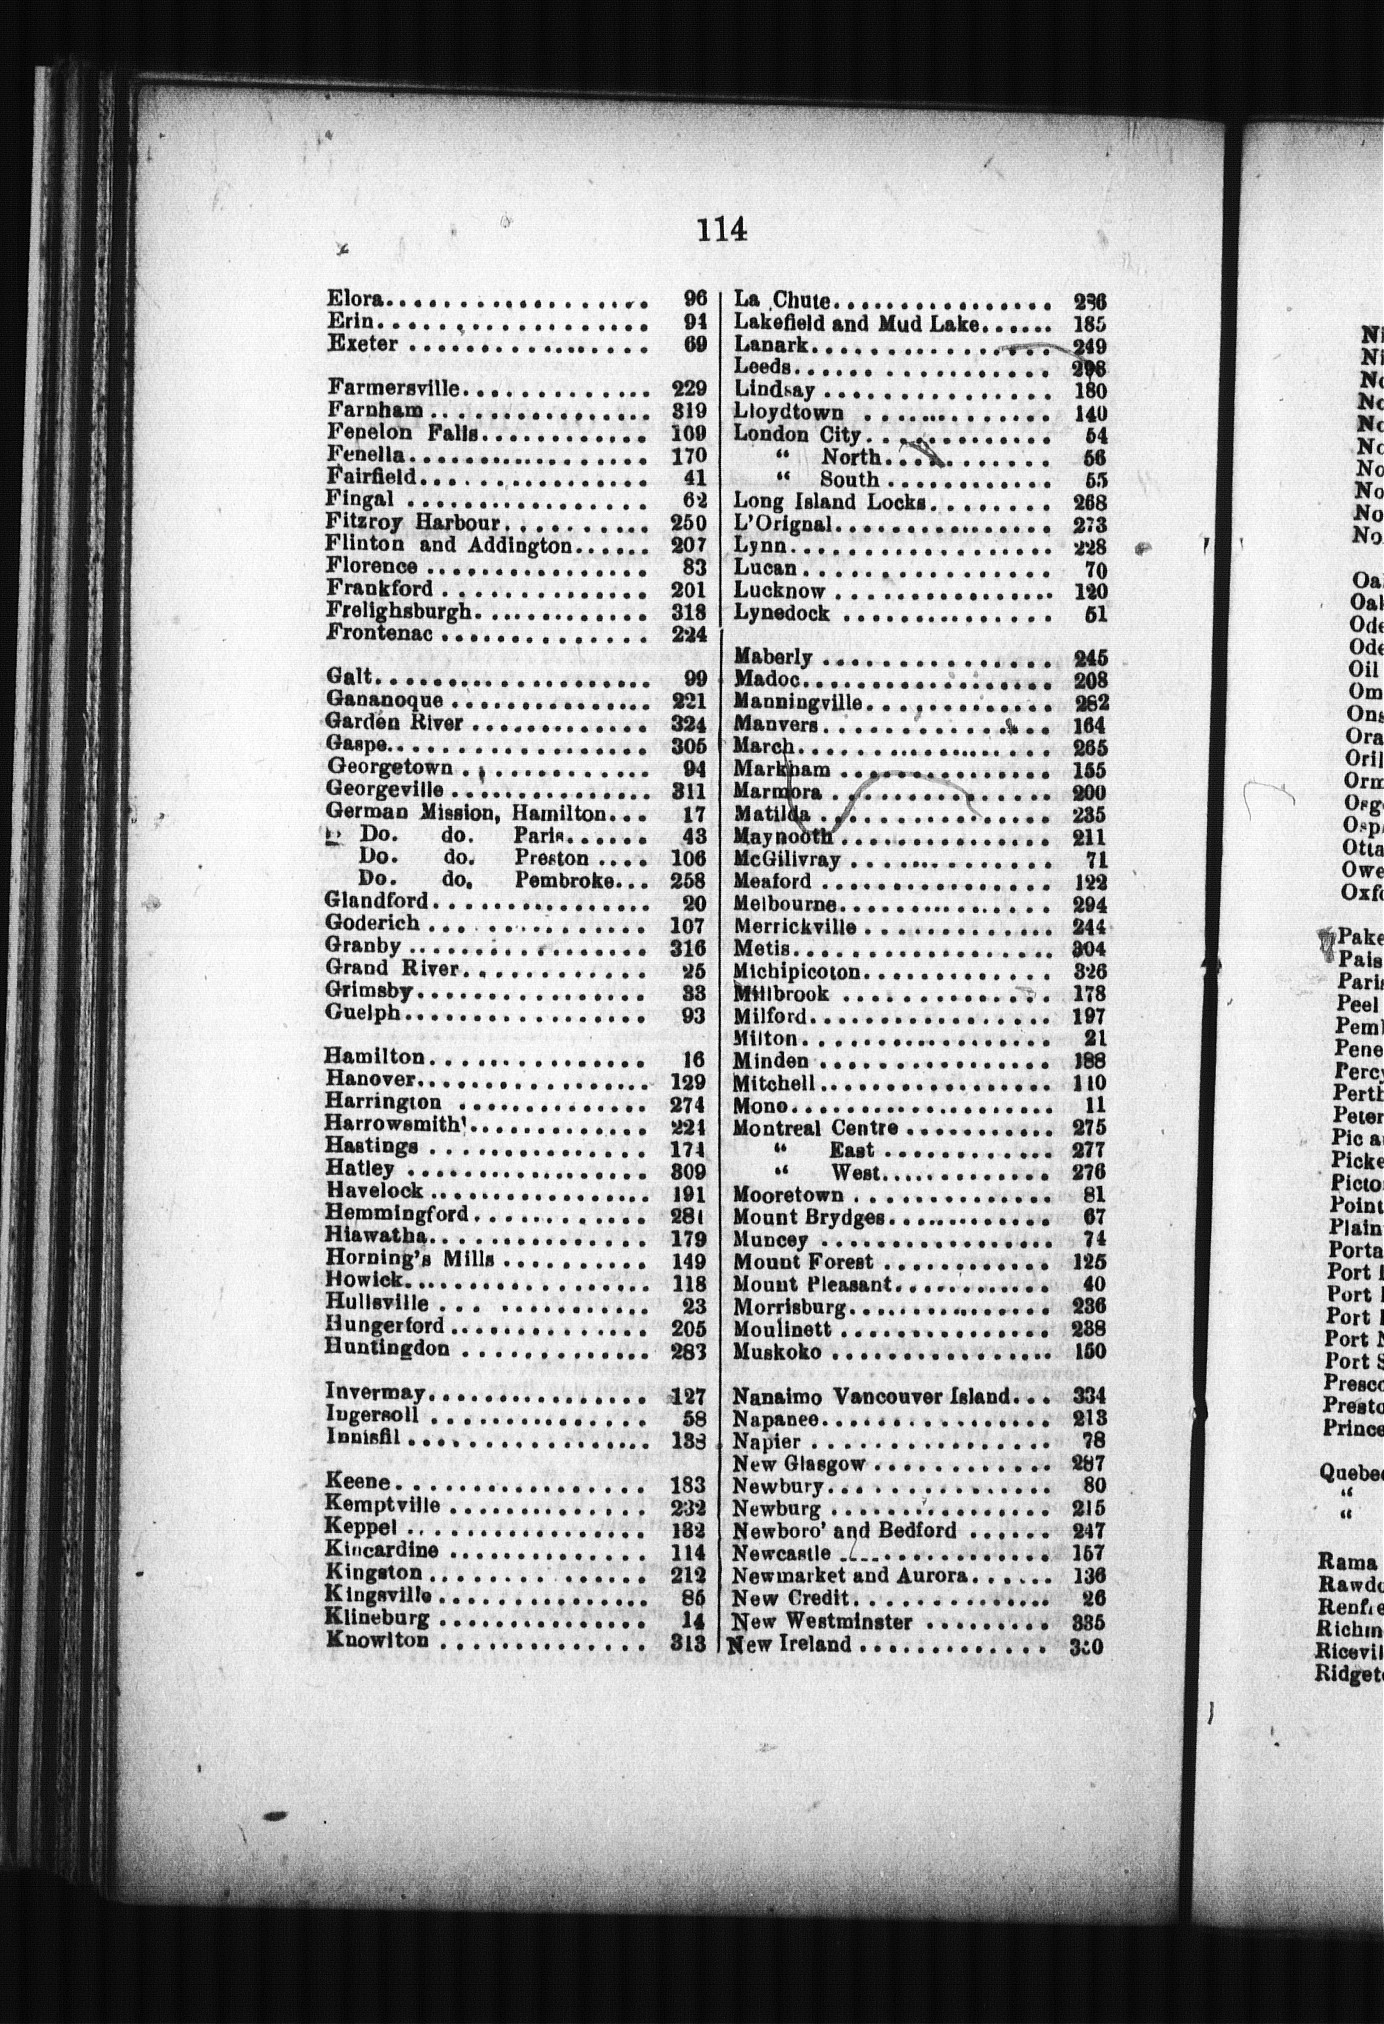 114
Elora.................. 96
Erin................... 94
Exeter ................. 69
Farmersville............. 229
Farnham ................ 319
Fenelon Falls............ 109
Fenella................. 170
Fairfield................ 41
Fingal ................. 62
Fitzroy Harbour.......... 250
Flinton and Addington...... 207
Florence ................ 83
Frankford .............. 201
Frelighsburgh............ 318
Frontenac .............. 224
Galt................... 99
Gananoque .............. 221
Garden River ............ 324
Gaspe.................. 305
Georgetown ............. 94
Georgeville .............. 311
German Mission, Hamilton... 17
Do. do. Paris...... 43
Do. do. Preston .... 106
Do. do. Pembroke... 258
Glandford............... 20
Goderich ............... 107
Granby ................ 316
Grand River............. 25
Grimsby................ 33
Guelph................. 93
Hamilton............... 16
Hanover................ 129
Harrington ............. 274
Harrowsmith............. 224
Hastings ............... 174
Hatley ................ 309
Havelock............... 191
Hemmingford............ 281
Hiawatha............... 179
Horning's Mills .......... 149
Howick................. 118
Hullsville ............... 23
Hungerford .............. 205
Huntingdon ............. 283
Invermay............... 127
Ingersoll ............... 58
Innisfil ................ 138
Keene................. 183
Kemptville .............. 232
Keppel ................ 132
Kincardine .............. 114
Kingston ............... 212
Kingsville............... 85
Klineburg ............... 14
Knowlton .............. 313
La Chute................ 286
Lakefield and Mud Lake...... 185
Lanark................. 249
Leeds.................. 298
Lindsay ................ 180
Lloydtown .............. 140
London City............. 54
“ North............ 56
“ South ............ 55
Long Island Locks......... 268
L'Orignal................ 273
Lynn.................. 228
Lucan................. 70
Lucknow ............... 120
Lynedock .............. 51
Maberly ............... 245
Madoc................. 208
Manningville............. 282
Manvers................ 164
March................. 265
Markham .............. 155
Marmora .............. 200
Matilda ................ 235
Maynooth .............. 211
McGilivray .............. 71
Meaford ............... 122
Melbourne.............. 294
Merrickville ............. 244
Metis................. 304
Michipicoton............. 326
Millbrook .............. 178
Milford................ 197
Milton................. 21
Minden ............... 188
Mitchell................ 110
Mono................. 11
Montreal Centre .......... 275
“ East ............ 277
“ West............. 276
Mooretown .............. 81
Mount Brydges............ 67
Muncey ................ 74
Mount Forest ............ 125
Mount Pleasant........... 40
Morrisburg.............. 236
Moulinett .............. 238
Muskoko ............... 150
Nanaimo Vancouver Island... 334
Napanee............... 213
Napier ................ 78
New Glasgow ............ 287
Newbury............... 80
Newburg ............... 215
Newboro' and Bedford ...... 247
Newcastle .............. 157
Newmarket and Aurora...... 136
New Credit.............. 26
New Westminster ......... 335
New Ireland .............
Oil
Paris
Peel
Percy
Perth
Quebec
“
“
Rama